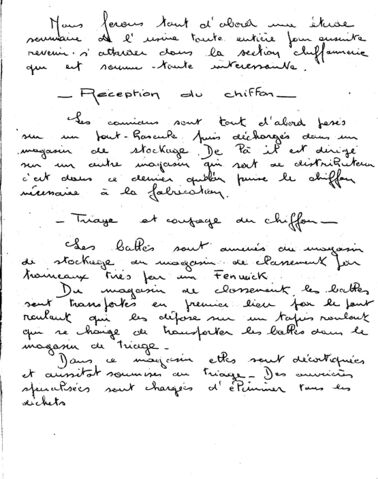 Nous ferons tout d'abord une étude
sommaire de l'usine toute entière pour ensuite
revenir s'attarder dans la section chiffonnerie
qui est somme-toute intéressante.
— Réception du chiffon —
Les camions sont tout d'abord pesés
sur un pont-bascule puis déchargés dans un
magasin de stockage. De là il est dirigé
sur un autre magasin qui sert de distributeur
c'est dans ce dernier qu'on puise le chiffon
nécessaire à la fabrication.
— Triage et coupage du chiffon —
Les balles sont amenées du magasin
de stockage au magasin de classement par
traineaux tirés par un Fenwick
Du magasin de classement, les balles
sont transportées en premier lieu par le pont
roulant qui les dépose sur un tapis roulant
qui se charge de transporter les balles dans le
magasin de triage.
Dans ce magasin elles sont décortiquées
et aussitôt soumises au triage. Des ouvrières
spécialisées sont chargées d'éliminer tous les
déchets